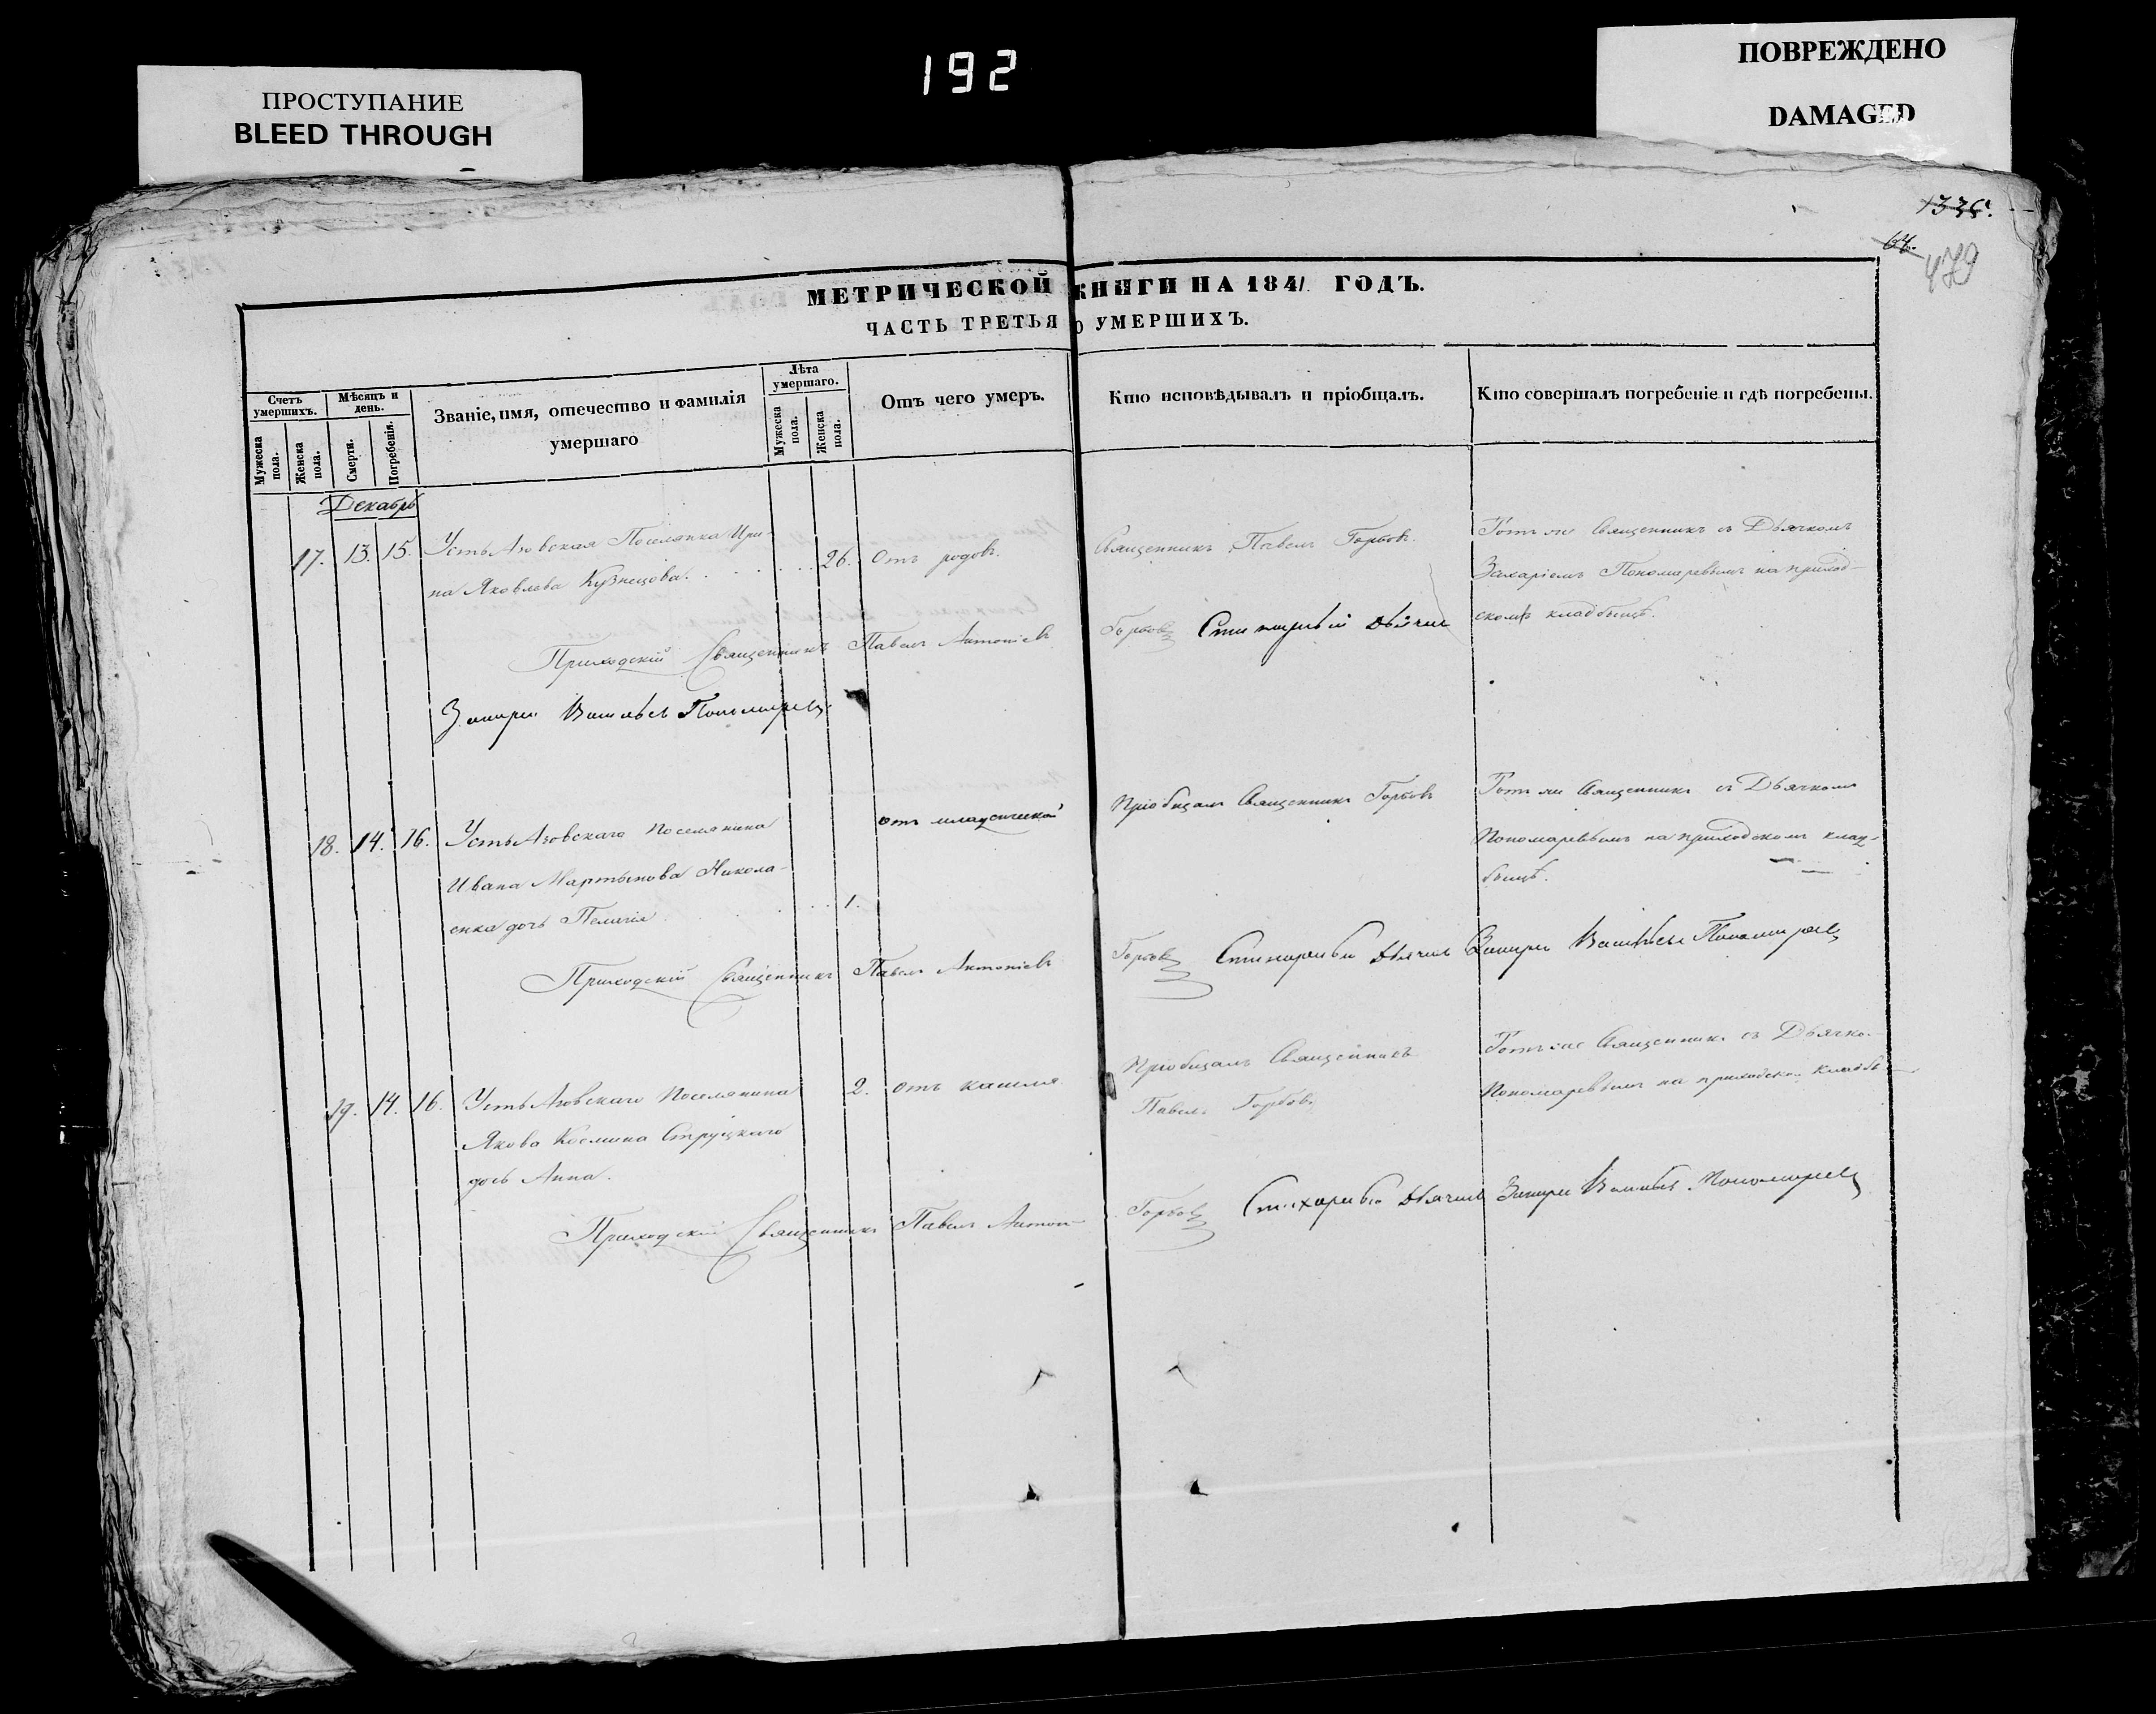 192
ПРОСТУПАНИЕ
BLEED THROUGH
ПОВРЕЖДЕНО
DAMAGED
1336.
64.
479
МЕТРИЧЕСКОЙ КНИГИ НА 1841 ГОДЪ.
ЧАСТЬ ТРЕТЬЯ О УМЕРШИХЪ.
Счетъ умершихъ.
Мужеска пола.
Женска пола.
Мѣсяцъ и день.
Смерти.
Погребенія.
Званіе, имя, отечество и фамилія
умершаго
Лѣта умершаго.
Мужеска пола.
Женска пола.
Отъ чего умеръ.
Кто исповѣдывалъ и пріобщалъ.
Кто совершалъ погребеніе и гдѣ погребены.
Декабрь
17. 13. 15. Усть Азовская Поселянка Ири-
на Яковлева Кузнецова.
26. Отъ родовъ.
Священникъ Павелъ Горбовъ.
Тотъ же Священникъ съ Дьячкомъ
Захаріемъ Пономаревымъ на приход-
скомъ кладбищѣ.
Приходскій Священникъ Павелъ Антоніевъ Горбовъ Стихарный Дьячекъ
Захарій Васильевъ Пономаревъ
18. 14. 16. Усть Азовскаго Поселянина
Ивана Мартынова Никола-
енка дочь Пелагія
1.
отъ младенческой
Пріобщалъ Священникъ Горбовъ
Тотъ же Священникъ съ Дьячкомъ
Пономаревымъ на приходскомъ клад-
бищѣ.
Приходскій Священникъ Павелъ Антоніевъ Горбовъ Стихарный Дьячекъ Захарій Васильевъ Пономаревъ
19. 14. 16. Усть Азовскаго Поселянина
Якова Космина Струцкаго
дочь Анна.
2. отъ кашля
Пріобщалъ Священникъ
Павелъ Горбовъ
Тотъ же Священникъ съ Дьячко-
Пономаревымъ на приходском кладб
Приходскій Священникъ Павелъ Антон- Горбовъ Стихарный Дьячекъ Захарій Васильевъ Пономаревъ